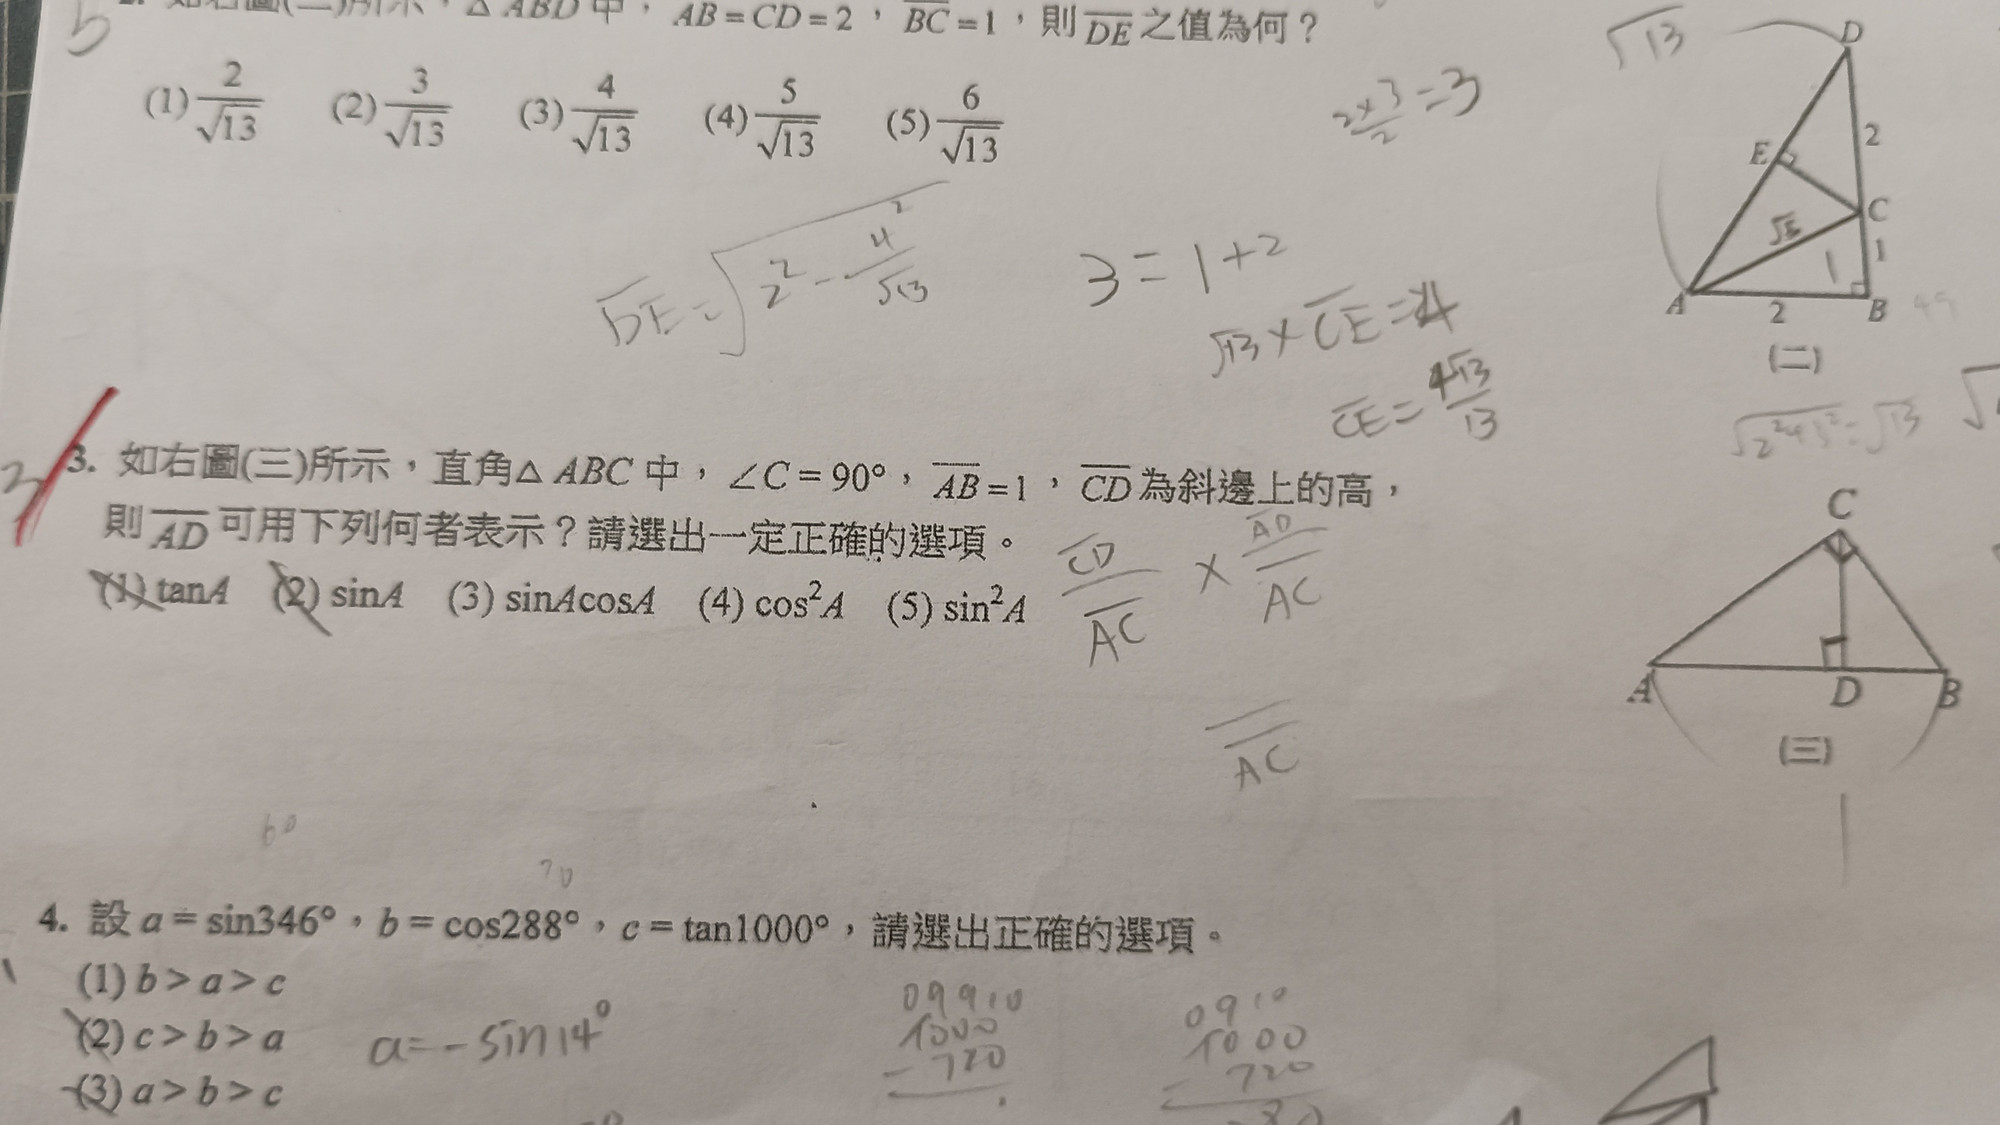 5 2. 如右圖(二)所示，△ABD中，AB=CD=2，BC=1，則DE之值為何？
(1) 2/√13 (2) 3/√13 (3) 4/√13 (4) 5/√13 (5) 6/√13
√13
2×3/2=3
D
E 2
C
√5
1 1
A 2 B
(二)
DE=√(2²-(4/√13)²)
3=1+2
√13×CE=4
CE=4√13/13
√(2²+3²)=√13
3. 如右圖(三)所示，直角△ABC中，∠C=90°，AB=1，CD為斜邊上的高，
則AD可用下列何者表示？請選出一定正確的選項。
(1) tanA (2) sinA (3) sinAcosA (4) cos²A (5) sin²A
CD/AC × AD/AC
AC
C
A D B
(三)
60
70
4. 設a=sin346°，b=cos288°，c=tan1000°，請選出正確的選項。
(1) b>a>c
(2) c>b>a
(3) a>b>c
a=-sin14°
09910
1000
-720
0910
1000
-720